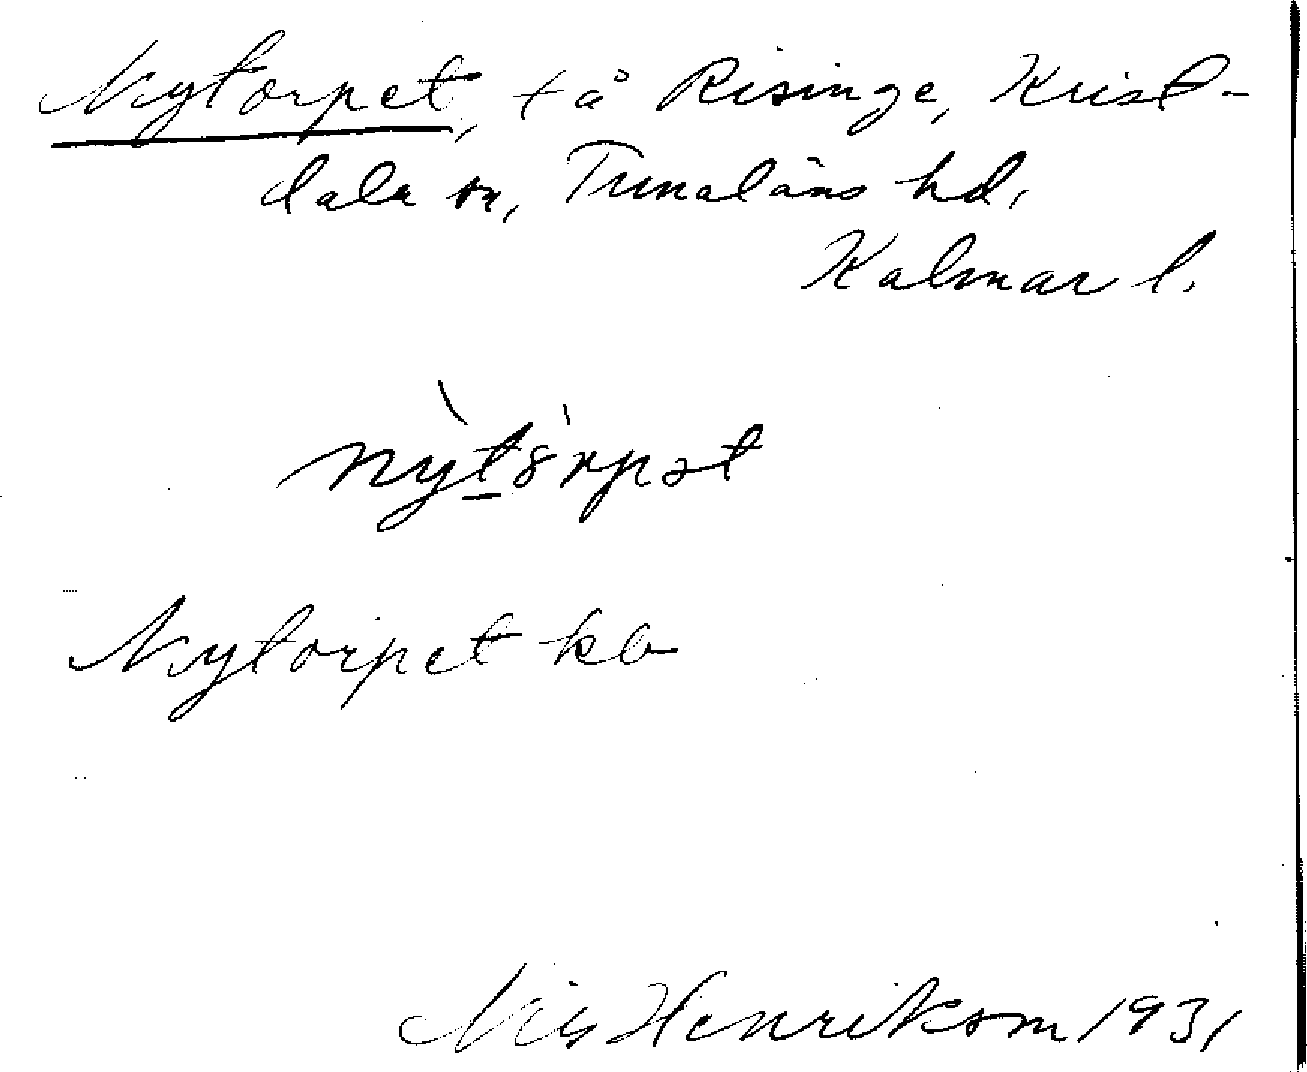 Nytorpet, t å Risinge, Krist-
dala sn, Tunaläns hd,
Kalmar l.
Nytorpet kb
Nils Henrikson 1931